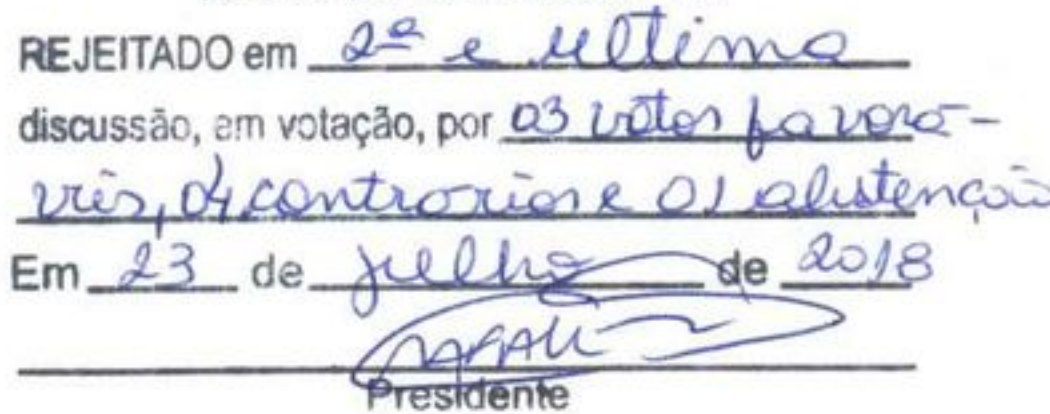 REJEITADO em 2ª e última
discussão, em votação, por 03 votos favorá-
veis, 04 contrários e 01 abstenção
Em 23 de julho de 2018
Presidente